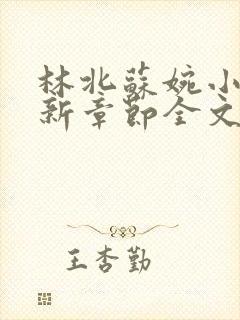 林北蘇婉小
新章節全文
王杏勤